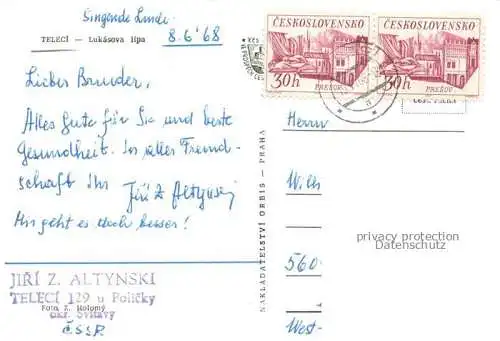 Singende Linde
TELECÍ — Lukášova lípa
8.6.'68
Lieber Bruder,
Alles Gute für Sie und beste
Gesundheit. In aller Freund-
schaft Ihr Jiří Z Altynski
Mir geht es doch besser!
JIŘÍ Z. ALTYNSKI
TELECÍ 129 u Poličky
Foto Z. Holomý
okr. Svitavy
ČSSR
NAKLADATELSTVÍ ORBIS — PRAHA
ČESKOSLOVENSKO
30h
PREŠOV
ČESKOSLOVENSKO
30h
PREŠOV
Herrn
Wilh
privacy protection
Datenschutz
560
West-